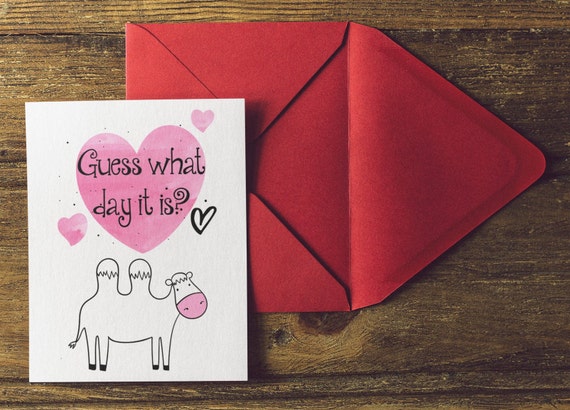 Guess what
day it is?